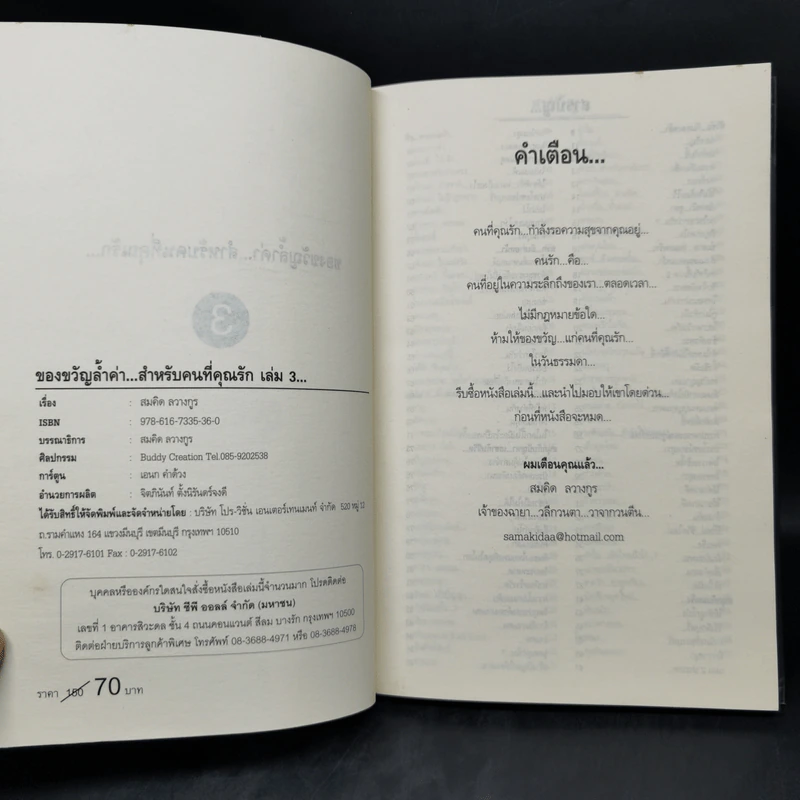 ของขวัญล้ำค่า...สำหรับคนที่คุณรัก เล่ม 3...
เรื่อง : สมคิด ลวางกูร
ISBN : 978-616-7335-36-0
บรรณาธิการ : สมคิด ลวางกูร
ศิลปกรรม : Buddy Creation Tel.085-9202538
การ์ตูน : เอนก คำด้วง
อำนวยการผลิต : จิตภินันท์ ตั้งนิรันตร์จงดี
ได้รับสิทธิ์ให้จัดพิมพ์และจัดจำหน่ายโดย : บริษัท โปร-วิชั่น เอนเตอร์เทนเมนท์ จำกัด 520 หมู่ 12
ถ.รามคำแหง 164 แขวงมีนบุรี เขตมีนบุรี กรุงเทพฯ 10510
โทร. 0-2917-6101 Fax : 0-2917-6102
บุคคลหรือองค์กรใดสนใจสั่งซื้อหนังสือเล่มนี้จำนวนมาก โปรดติดต่อ
บริษัท ซีพี ออลล์ จำกัด (มหาชน)
เลขที่ 1 อาคารสิวะดล ชั้น 4 ถนนคอนแวนต์ สีลม บางรัก กรุงเทพฯ 10500
ติดต่อฝ่ายบริการลูกค้าพิเศษ โทรศัพท์ 08-3688-4971 หรือ 08-3688-4978
ราคา 180 70 บาท
คำเตือน...
คนที่คุณรัก...กำลังรอความสุขจากคุณอยู่...
คนรัก...คือ...
คนที่อยู่ในความระลึกถึงของเรา...ตลอดเวลา...
ไม่มีกฎหมายข้อใด...
ห้ามให้ของขวัญ...แก่คนที่คุณรัก...
ในวันธรรมดา...
รีบซื้อหนังสือเล่มนี้...และนำไปมอบให้เขาโดยด่วน...
ก่อนที่หนังสือจะหมด...
ผมเตือนคุณแล้ว...
สมคิด ลวางกูร
เจ้าของฉายา...วลีกวนตา...วาจากวนตีน...
samakidaa@hotmail.com